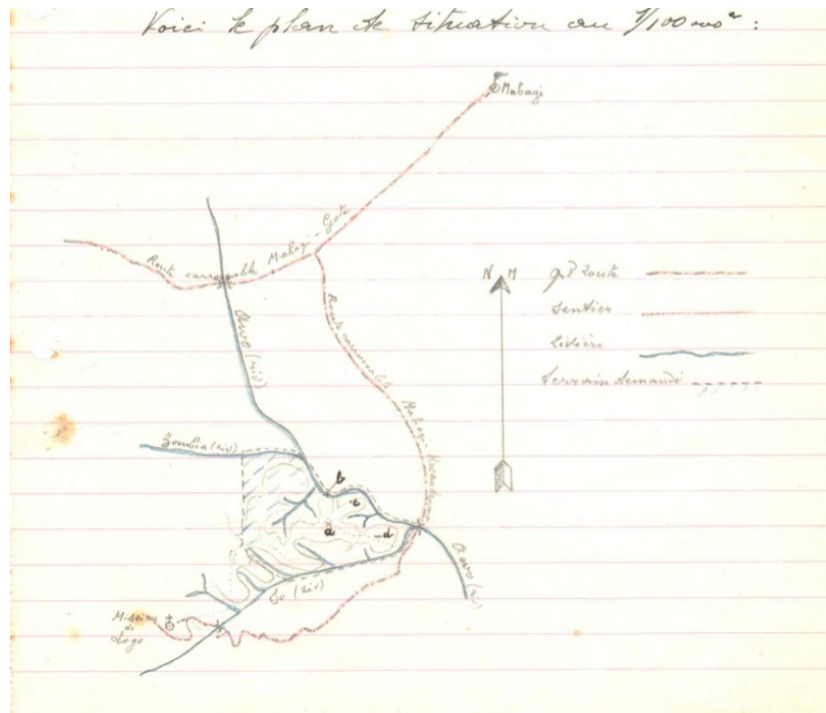 Voici le plan de situation au 1/100000e :
Mahagi
Route carrossable Mahagi - Gote
N M
gde Route
Sentier
Rivière
Terrain demandé
Awo (riv)
Route carrossable Mahagi
Zombia (riv)
b
c
a
d
Awo (riv)
Lu (riv)
Mission
de
Logo